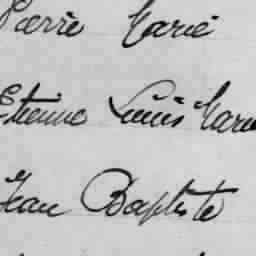 Pierre Marie
Etienne Louis Marie
Jean Baptiste